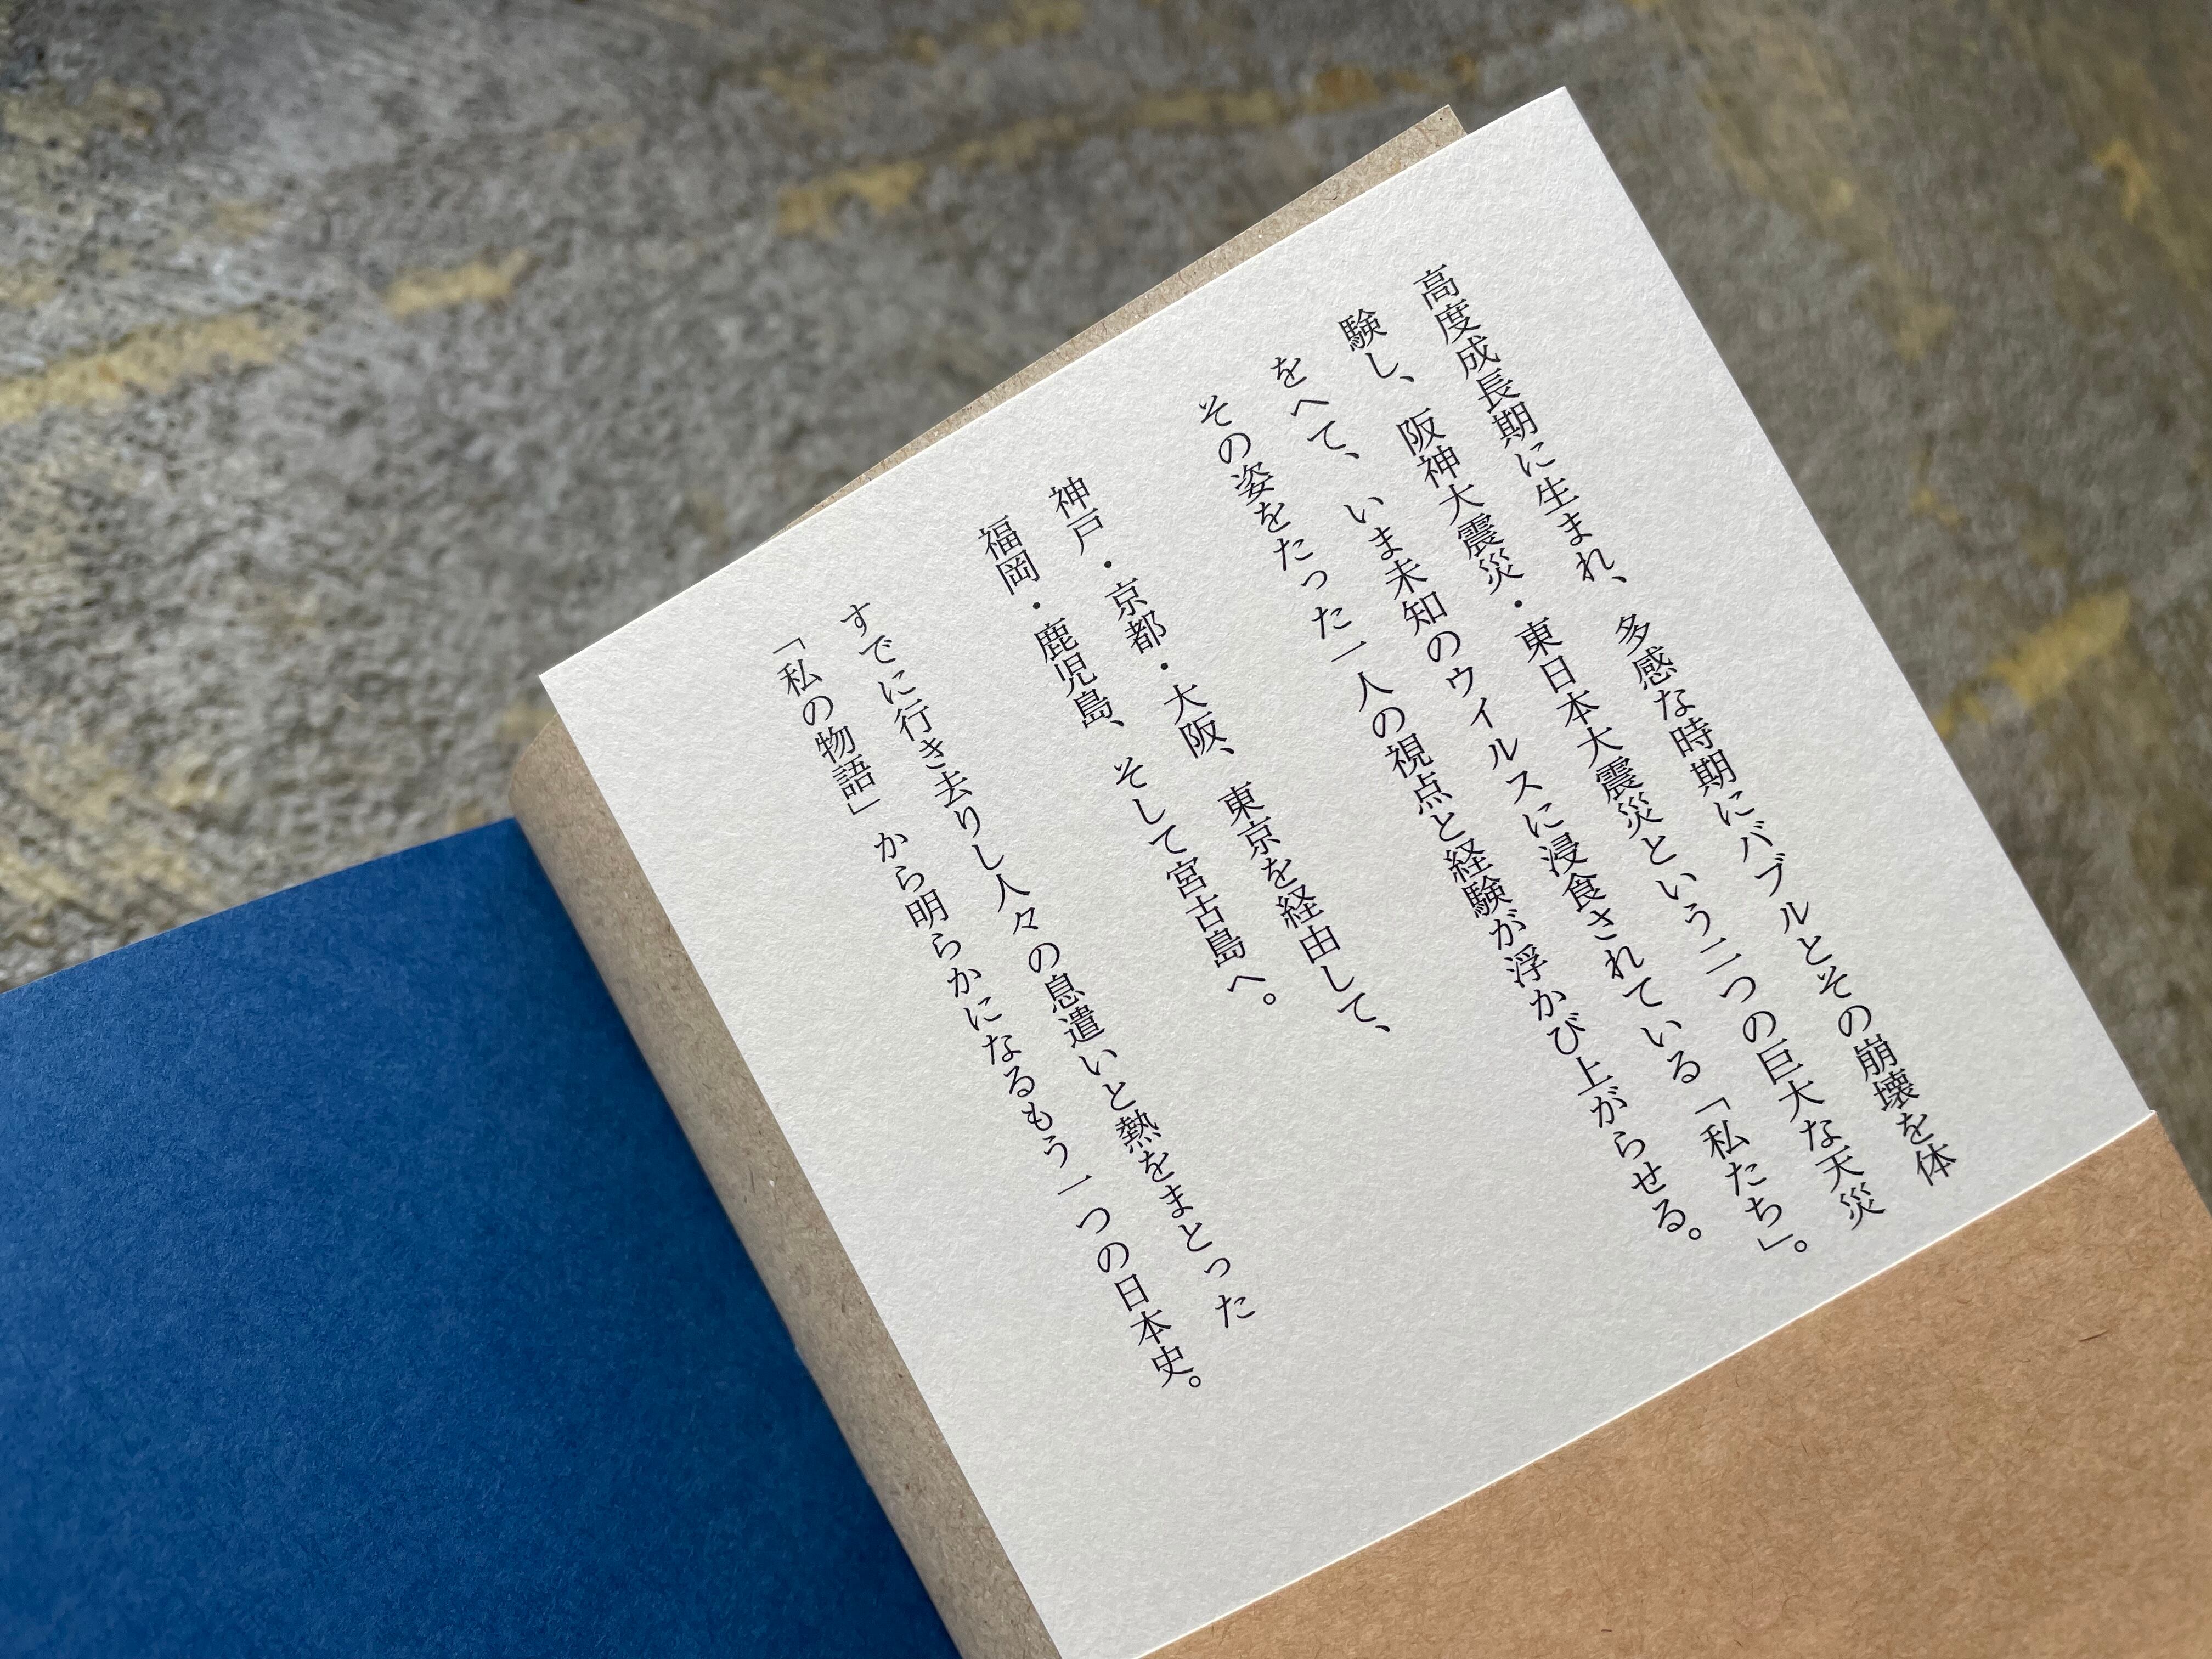 高度成長期に生まれ、多感な時期にバブルとその崩壊を体
験し、阪神大震災・東日本大震災という二つの巨大な天災
をへて、いま未知のウィルスに浸食されている「私たち」。
その姿をたった一人の視点と経験が浮かび上がらせる。
神戸・京都・大阪、東京を経由して、
福岡・鹿児島、そして宮古島へ。
すでに行き去りし人々の息遣いと熱をまとった
「私の物語」から明らかになるもう一つの日本史。